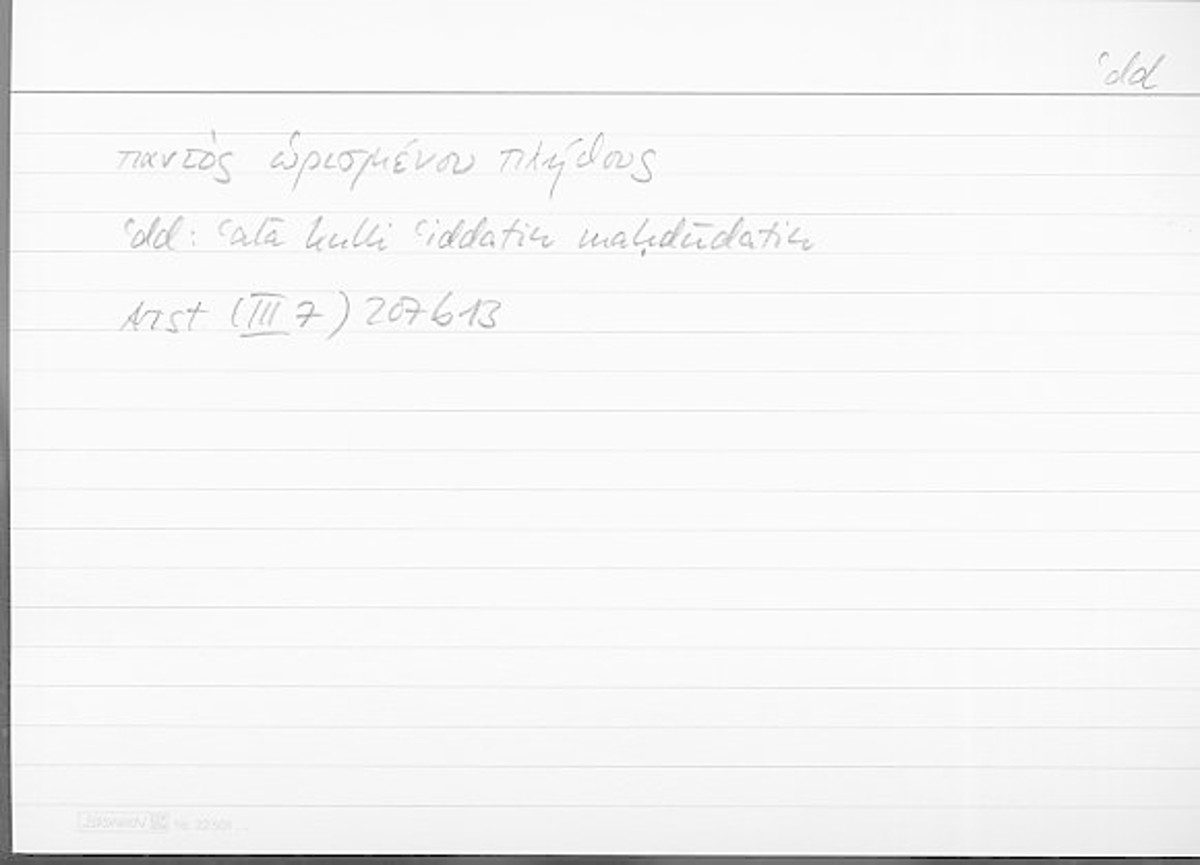 ʿdd
παντὸς ὡρισμένου πλήθους
ʿdd: ʿalā kulli ʿiddatin maḥdūdatin
Arist (III 7) 207b13